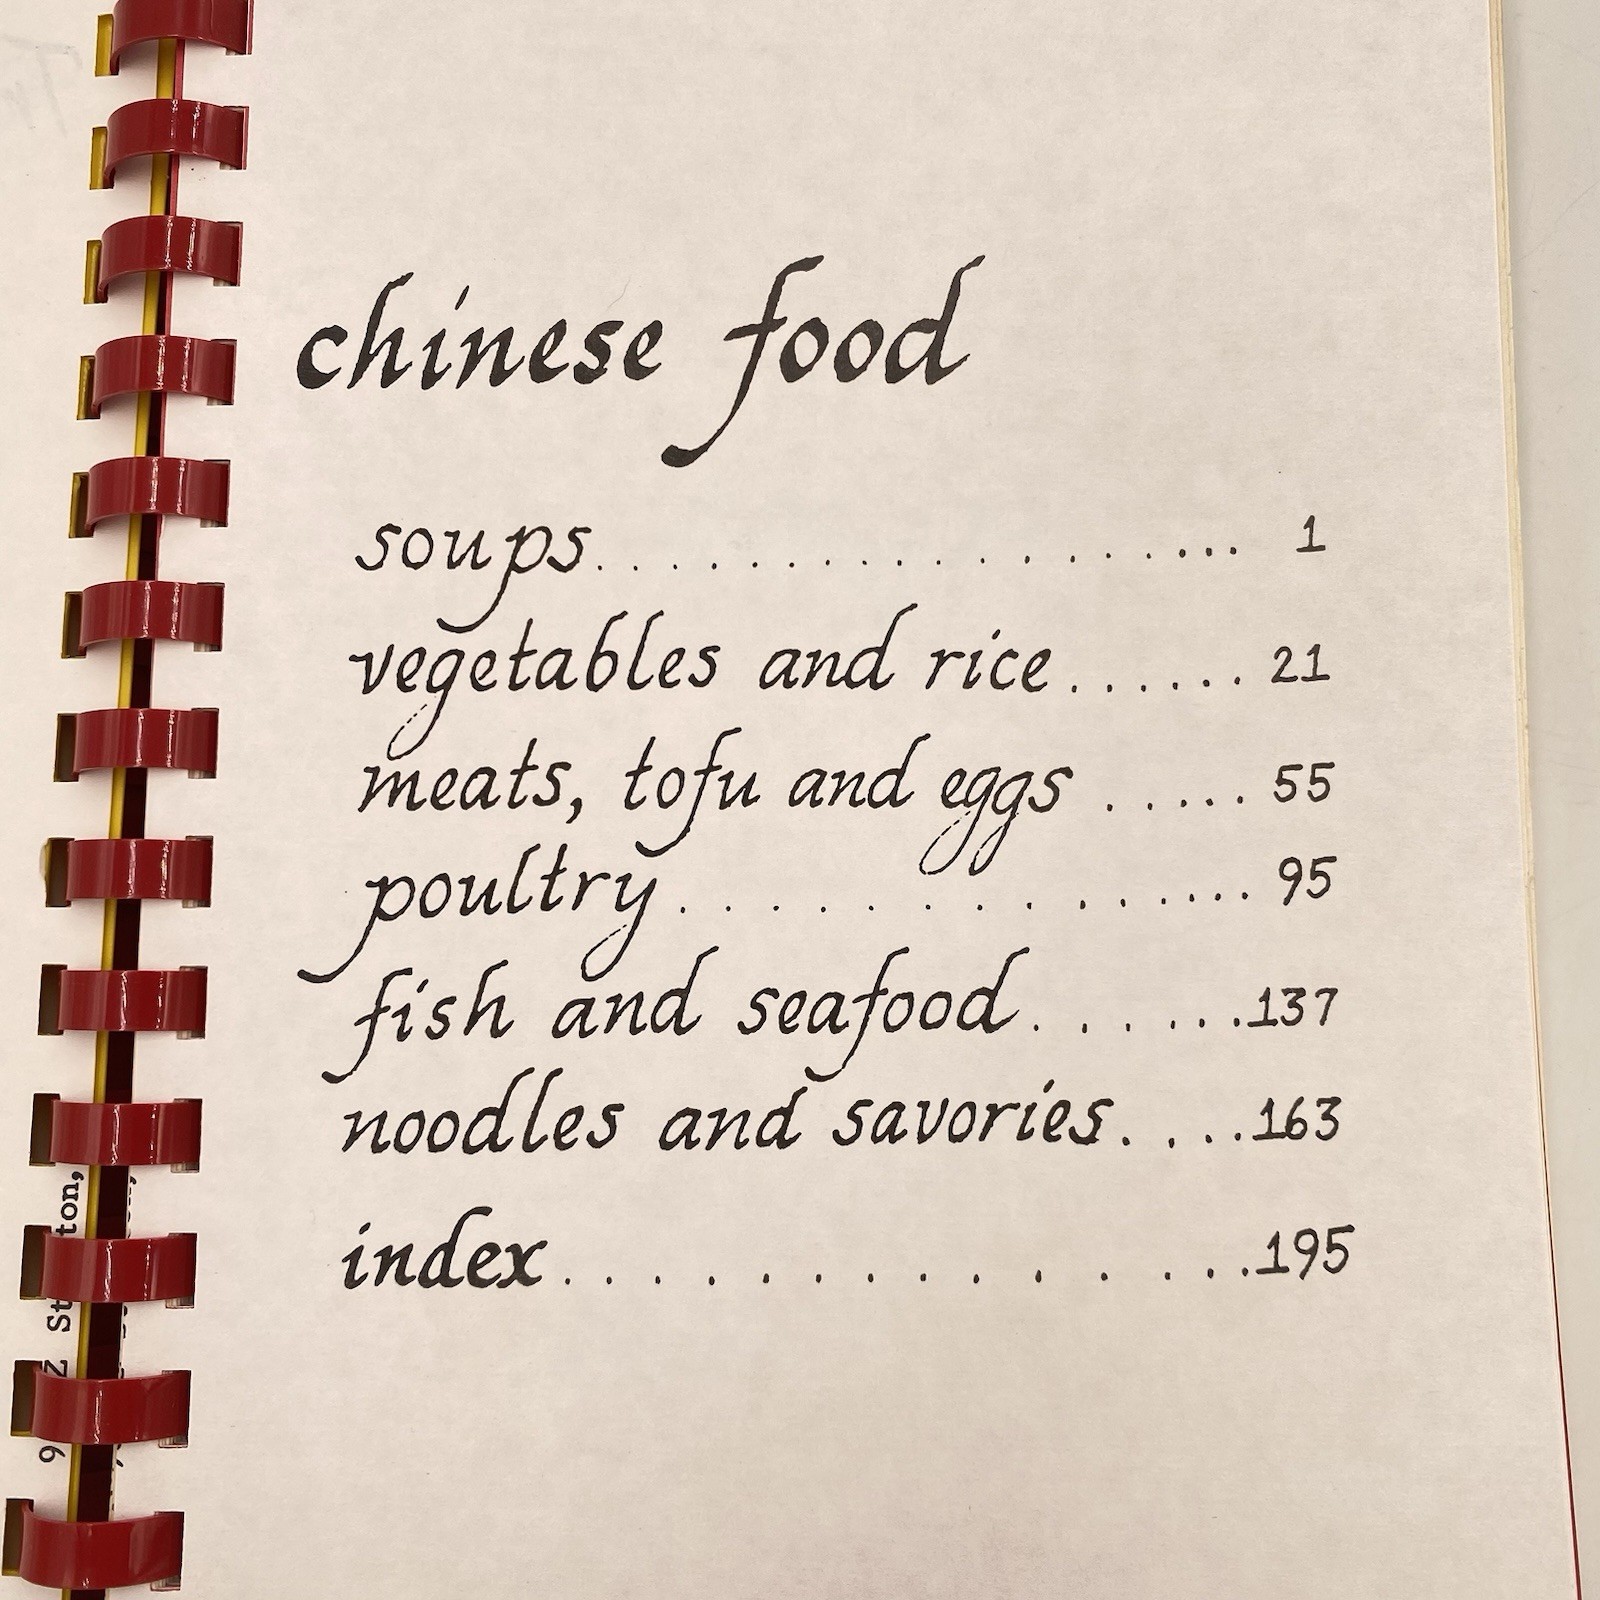 chinese food
soups. . . . . . . . . . . . . . . . . ... 1
vegetables and rice. . . . . . 21
meats, tofu and eggs . . . . . 55
poultry. . . . . . . . . . . . . . 95
fish and seafood. . . . . . .137
noodles and savories. . . . .163
index. . . . . . . . . . . . . . .195